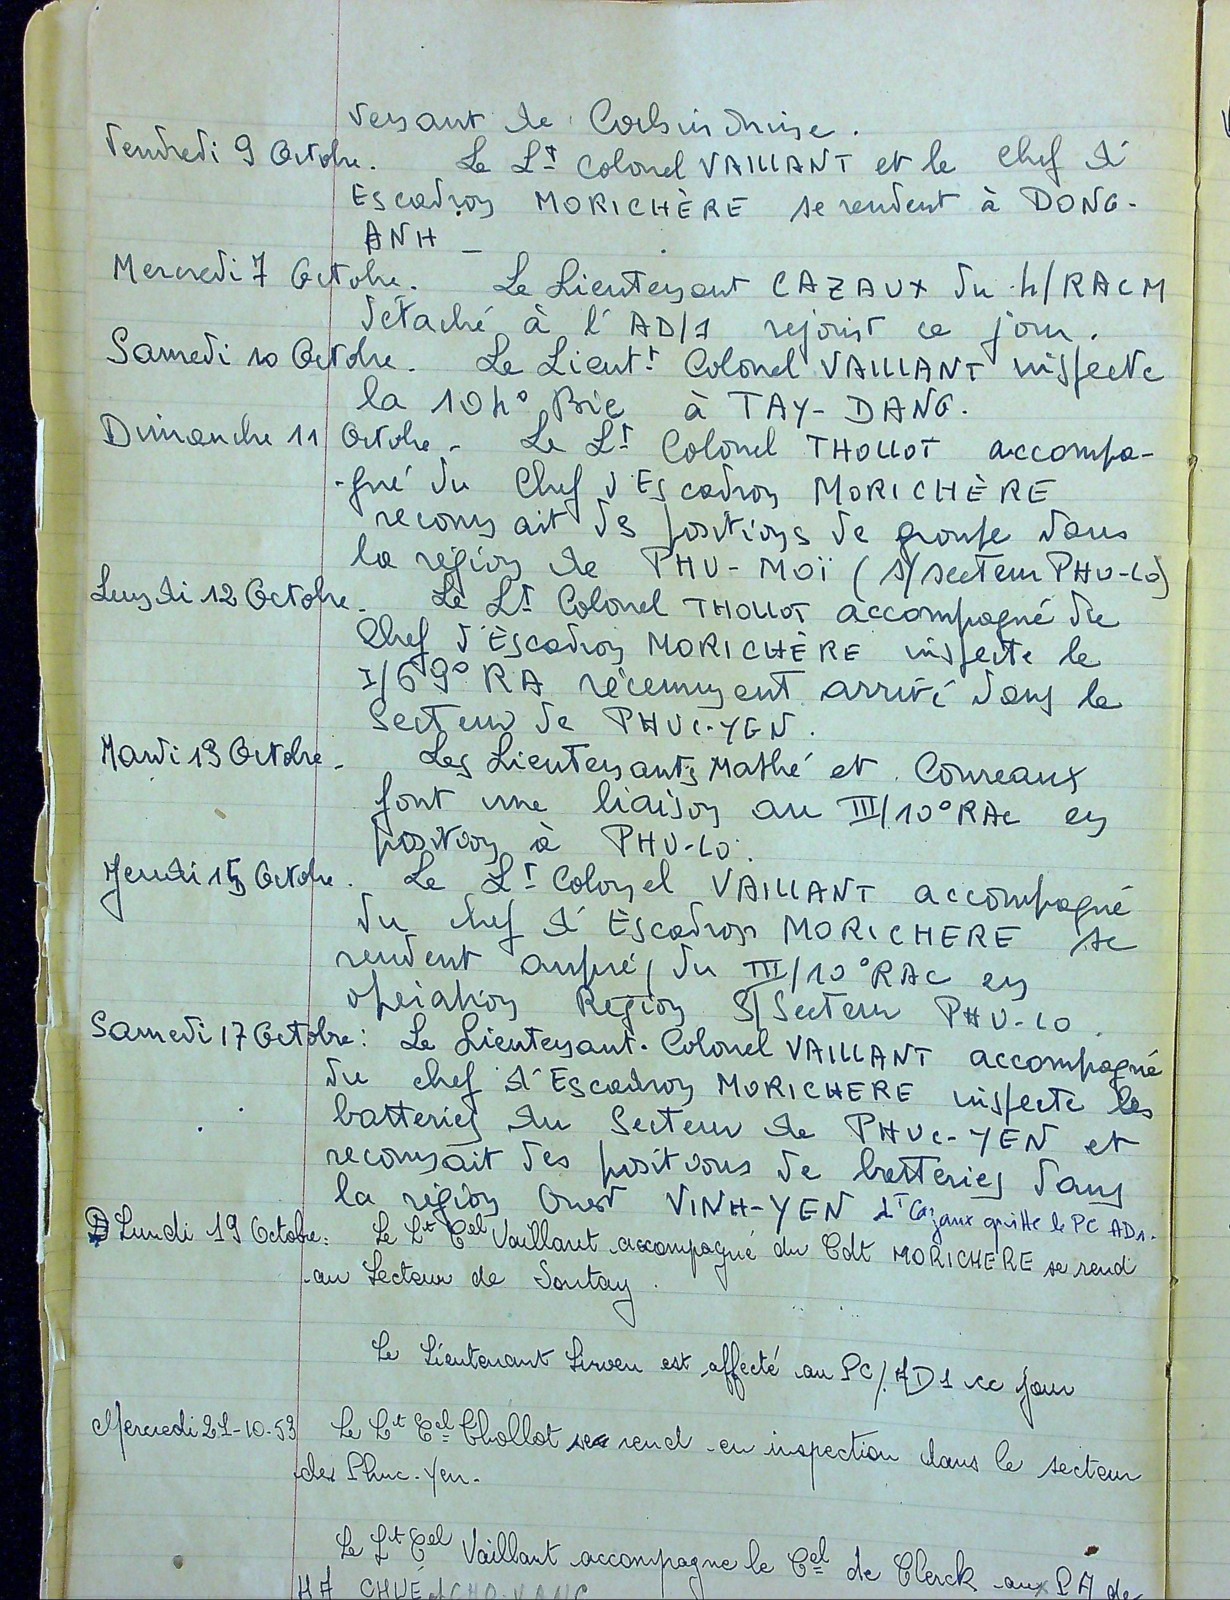 venant de Cochinchine.
Vendredi 9 Octobre. Le Lt Colonel VAILLANT et le Chef d'
Escadron MORICHÈRE se rendent à DONG-
ANH _
Mercredi 7 Octobre. Le Lieutenant CAZAUX du 4/RACM
détaché à l'AD/1 rejoint ce jour.
Samedi 10 Octobre. Le Lieutt Colonel VAILLANT inspecte
la 104° Bie à TAY-DANG.
Dimanche 11 Octobre - Le Lt Colonel THOLLOT accompa-
-gné du Chef d'Escadron MORICHÈRE
reconnait des positions de groupe dans
la région de PHU-MOÏ (s/secteur PHU-LO)
Lundi 12 Octobre. Le Lt Colonel THOLLOT accompagné du
Chef d'Èscadron MORICHÈRE inspecte le
I/69° RA récemment arrivé dans le
Secteur de PHUC-YEN.
Mardi 13 Octobre - Les Lieutenants Mathé et Coureaux
font une liaison au III/10°RAC en
position à PHU-LO.
Jeudi 15 Octobre. Le Lt Colonel VAILLANT accompagné
du chef d'Èscadron MORICHERE se
rendent auprés du III/10°RAC en
opération Région S/Secteur PHU-LO.
Samedi 17 Octobre: Le Lieutenant-Colonel VAILLANT accompagné
du chef d'Escadron MORICHERE inspecte les
batteries du Secteur de PHUC-YEN et
reconnait des positions de batteries dans
la région Ouest VINH-YEN Lt Cazaux quitte le PC AD1.
Lundi 19 Octobre: Le Lt Cel Vaillant accompagné du Cdt MORICHERE se rend
au Secteur de Sontay.
Le Lieutenant Sirven est affecté au PC/AD1 ce jour
Mercredi 21-10-53 Le Lt Cel Thollot se rend en inspection dans le secteur
de Phuc-Yen.
Le Lt Cel Vaillant accompagne le Cel de Clerck aux PA de
HA CHUÉ